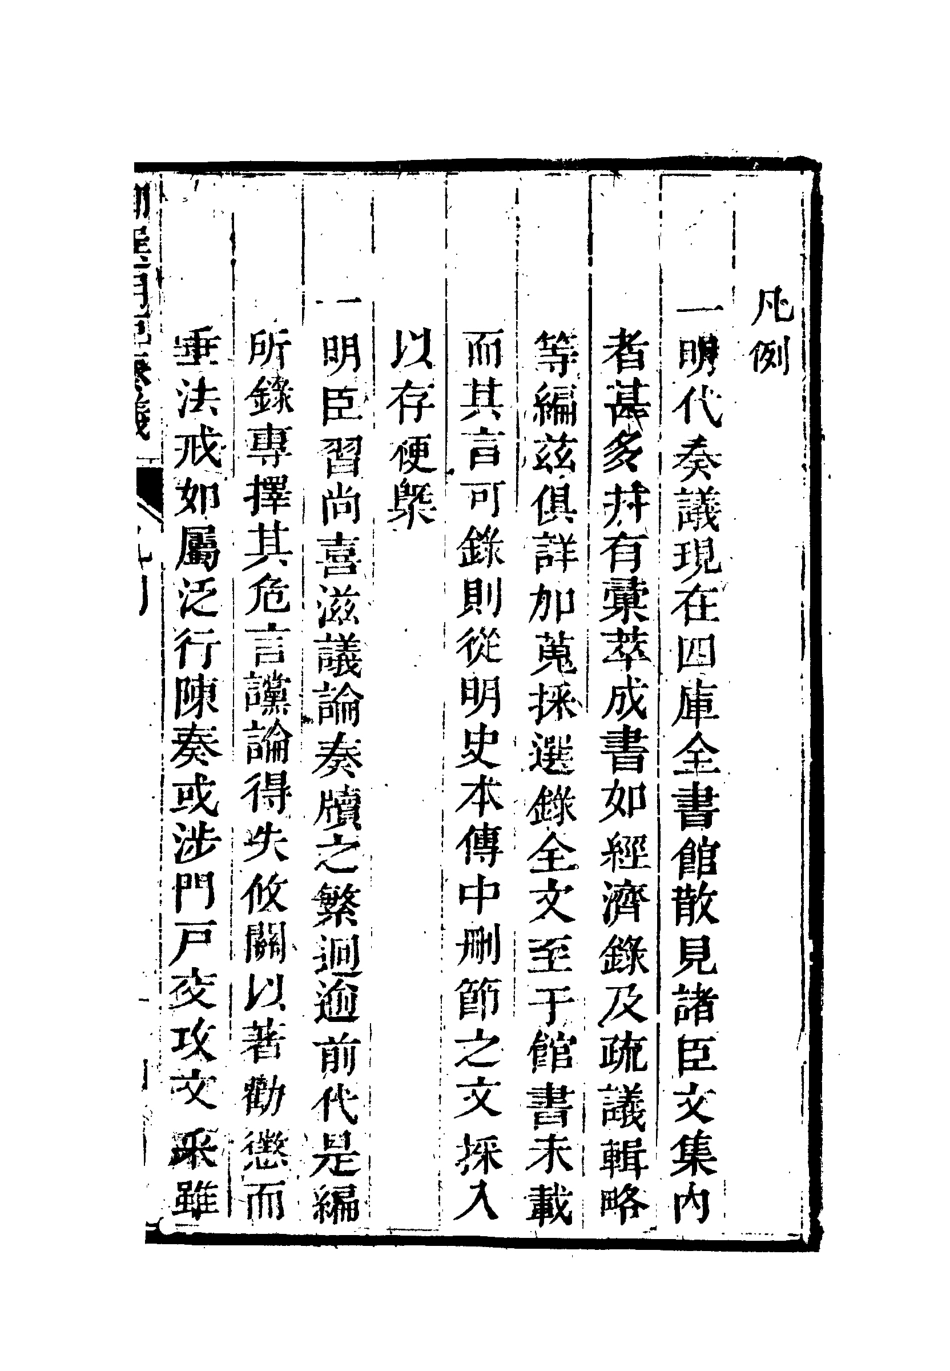 凡例
一明代奏議現在四庫全書館散見諸臣文集內
者甚多并有彚萃成書如經濟錄及疏議輯略
等編茲俱詳加蒐採選錄全文至于館書未載
而其言可錄則從明史本傳中刪節之文採入
以存梗槩
一明臣習尚喜滋議論奏牘之繁迥逾前代是編
所錄專擇其危言讜論得失攸關以著勸懲而
垂法戒如屬泛行陳奏或涉門戸交攻文采雖